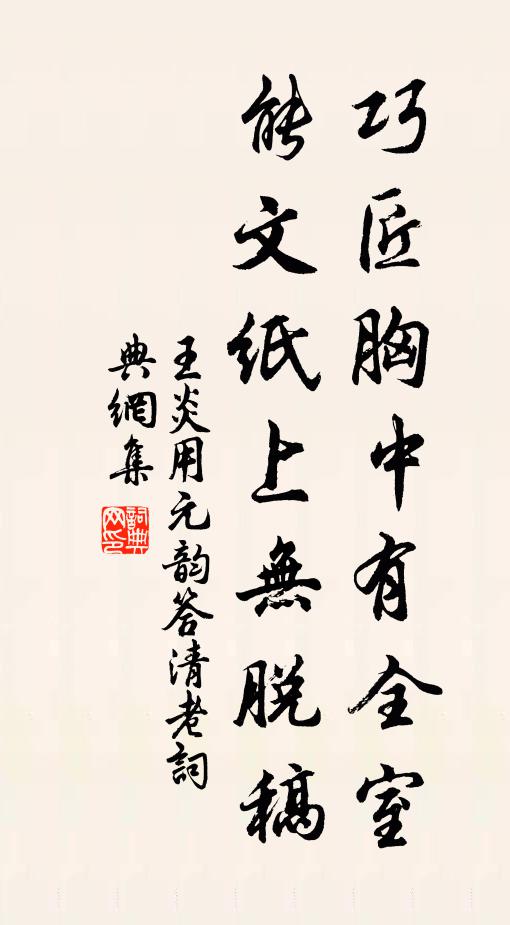 巧匠胸中有全室
能文紙上無脱稿
王炎用元韵答清老詞
典網集
詞典網印